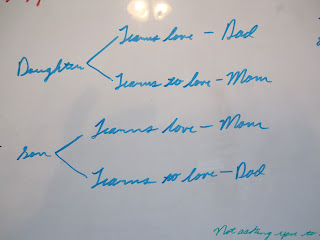 Learns love - Dad
Daughter
Learns to love - Mom
Learns love - Mom
Son
Learns to love - Dad
Not asking you to